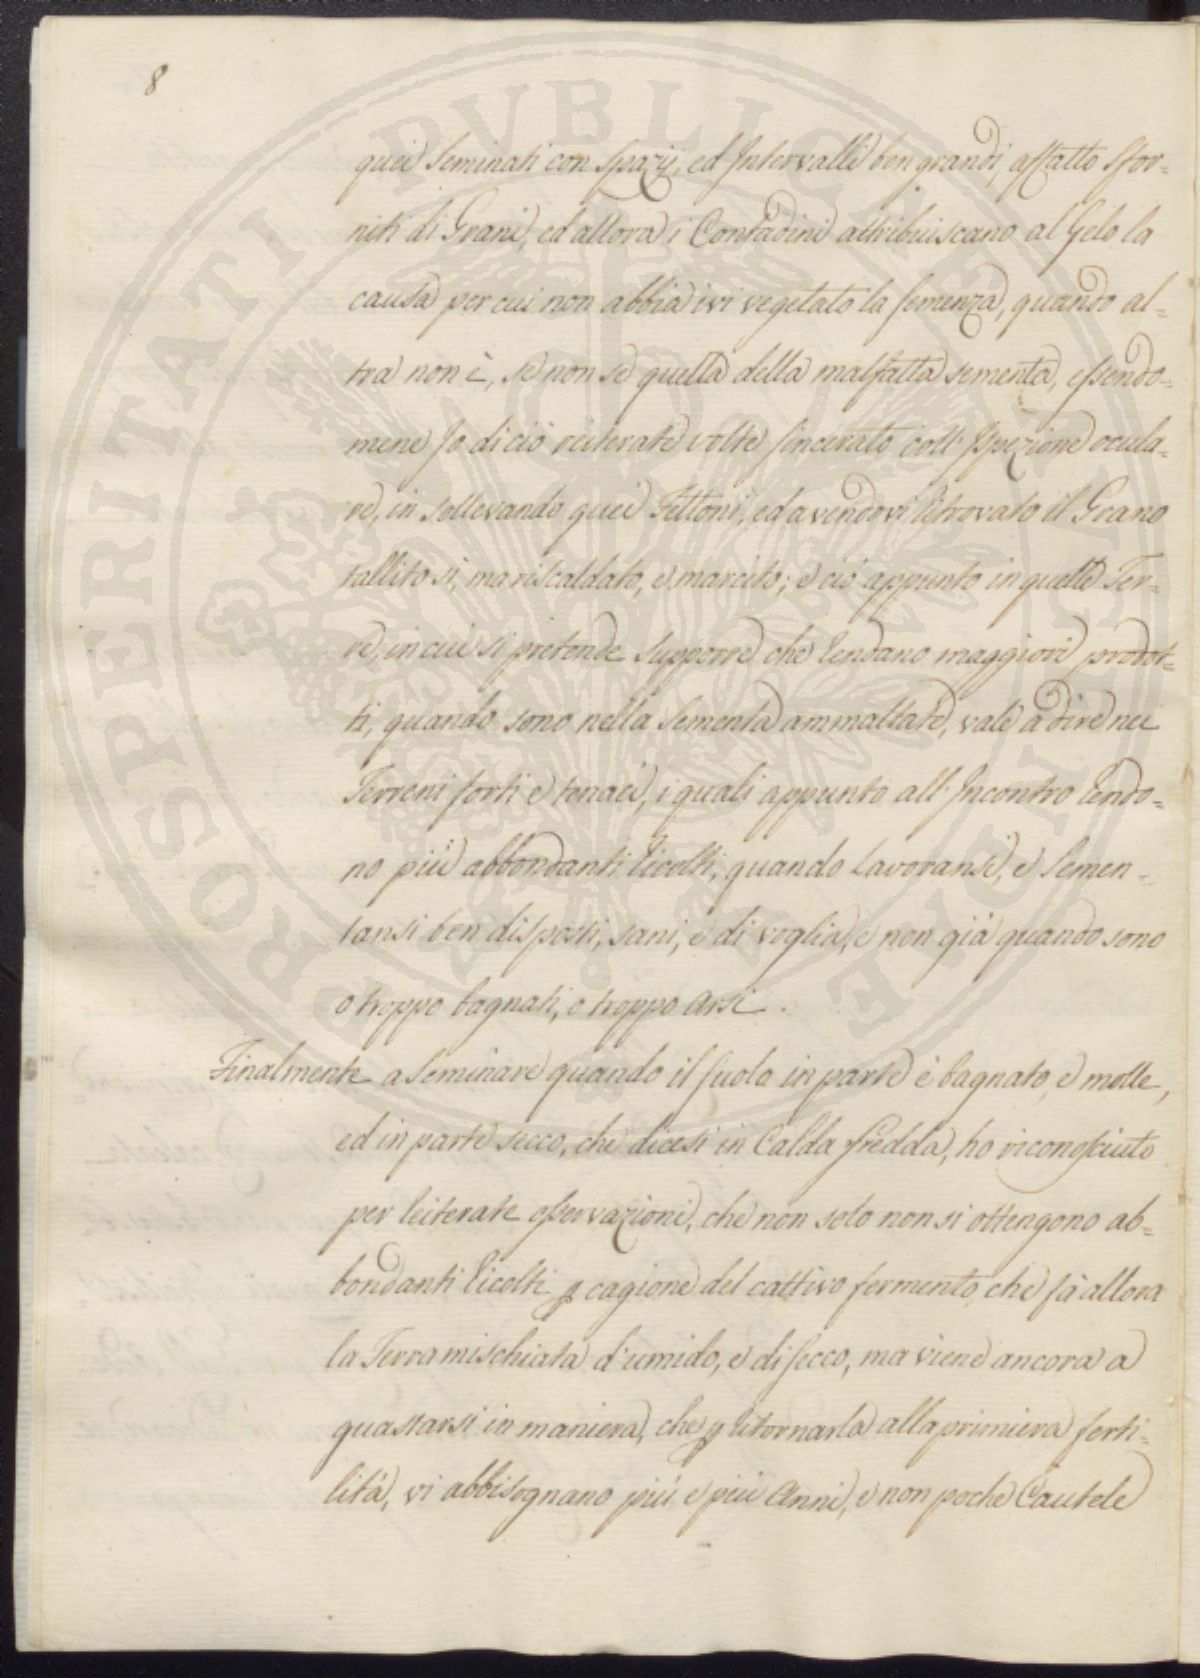 8
quei Seminati con Spazij, ed Intervalli ben grandi, affatto sfor=
niti di Grani, ed allora i Contadini attribuiscano al Gelo la
causa per cui non abbia ivi vegetato la semenza, quando al=
tra non è, se non se quella della malfatta sementa, essendo=
mene Io di ciò reiterate volte sincerato coll' Ispezione ocula=
re, in sollevando quei Fettoni, ed avendovi ritrovato il Grano
tallito sì, ma riscaldato, e marcito; e ciò appunto in quelle Ter=
re, in cui si pretende supporre che rendano maggiori prodot=
ti, quando sono nella Sementa ammattate, vale a dire nei
Terreni forti e tenaci, i quali appunto all' Incontro rendo=
no più abbondanti ricolti, quando lavoransi, e Semen=
tansi ben disposti, sani, e di voglia, e non già quando sono
o troppo bagnati, o troppo arsi.
Finalmente a Seminare quando il suolo in parte è bagnato, e molle,
ed in parte secco, che dicesi in Calda fredda, ho riconosciuto
per reiterate osservazioni, che non solo non si ottengono ab=
bondanti ricolti p cagione del cattivo fermento, che fà allora
la Terra mischiata d'umido, e di secco, ma viene ancora a
guastarsi in maniera, che p ritornarla alla primiera ferti=
lità, vi abbisognano più e più Anni, e non poche Cautele
PROSPERITATI PVBLICAE